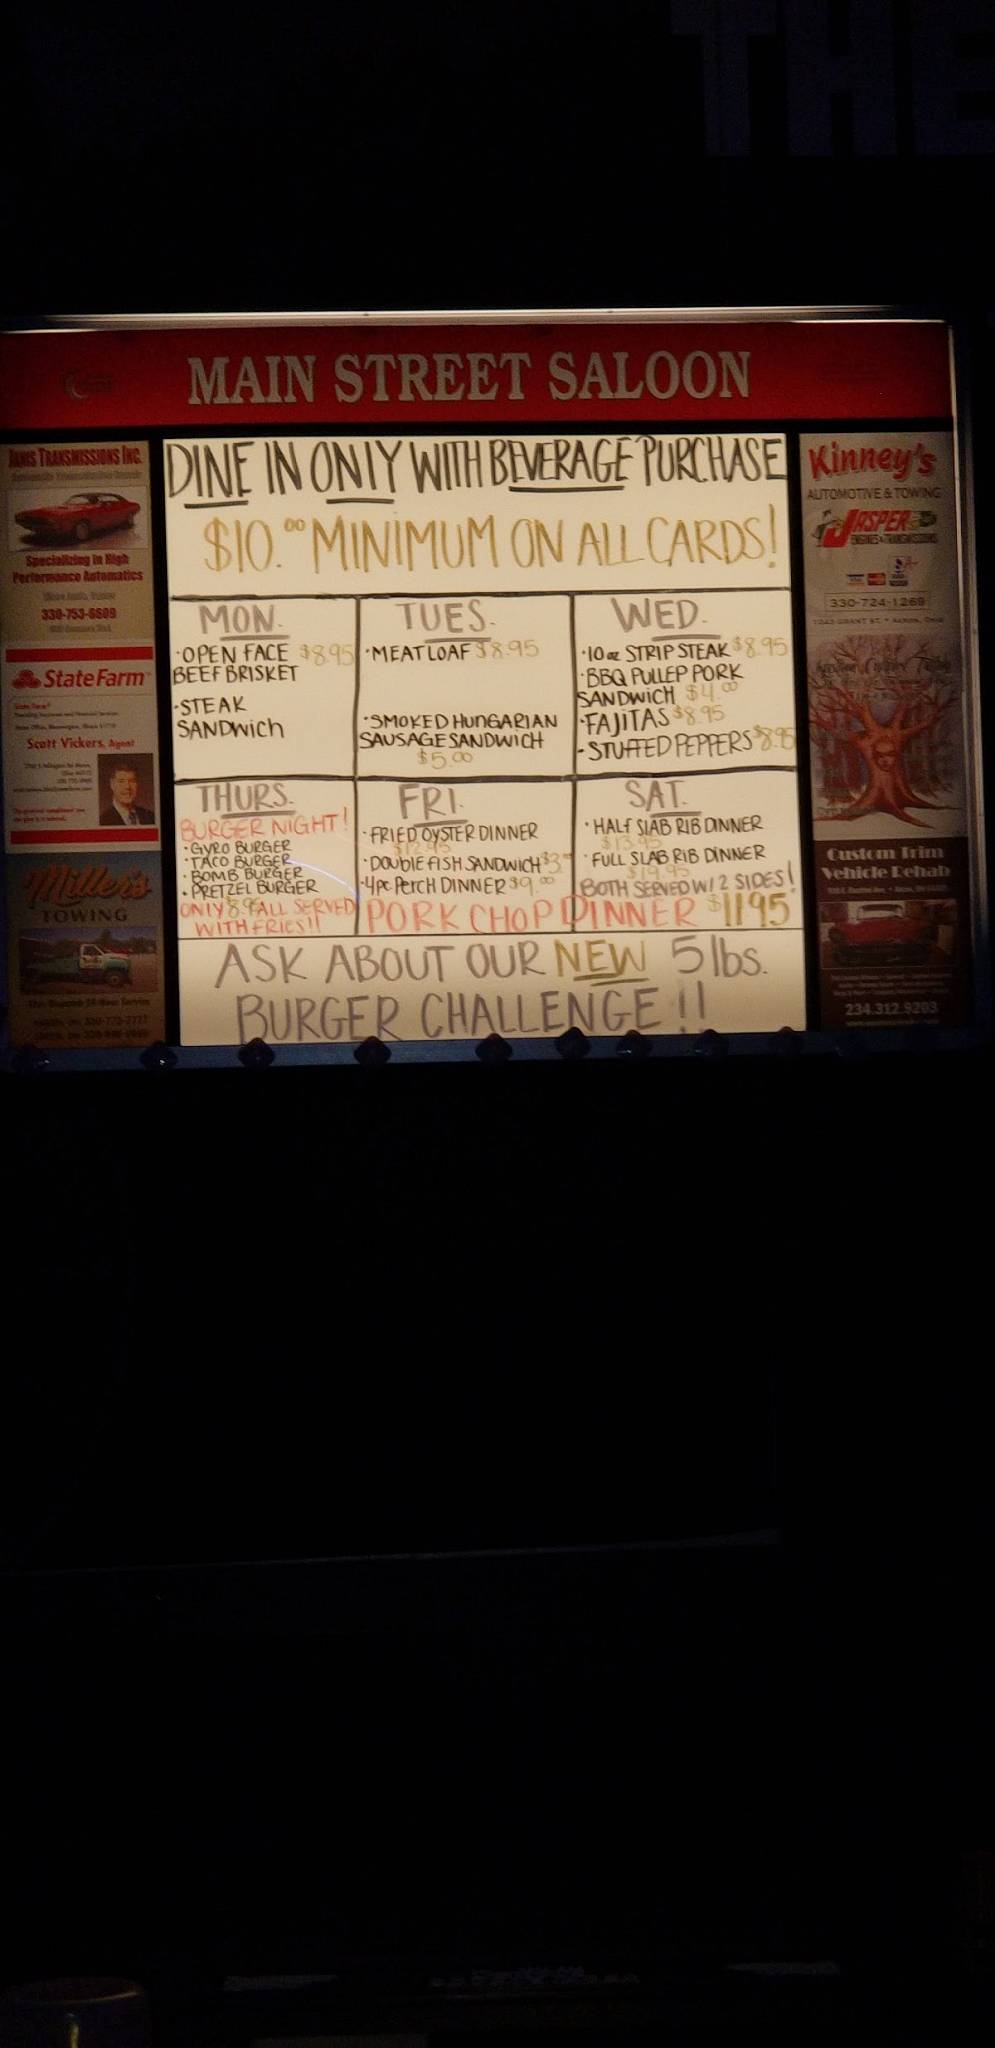 THE
MAIN STREET SALOON
JAMS TRANSMISSIONS INC.
Specializing in High
Performance Automatics
330-753-6609
StateFarm
Scott Vickers, Agent
Miller's
TOWING
DINE IN ONLY WITH BEVERAGE PURCHASE
$10.00 MINIMUM ON ALL CARDS!
MON.
·OPEN FACE $8.95
BEEF BRISKET
·STEAK
SANDWICH
TUES.
·MEATLOAF $8.95
·SMOKED HUNGARIAN
SAUSAGE SANDWICH
$5.00
WED.
·10 oz STRIP STEAK $8.95
·BBQ PULLEP PORK
SANDWICH $4.00
·FAJITAS $8.95
·STUFFED PEPPERS $8.95
THURS.
BURGER NIGHT!
·GYRO BURGER
·TACO BURGER
·BOMB BURGER
·PRETZEL BURGER
ONLY 8.95 ALL SERVED
WITH FRIES!!
FRI.
·FRIED OYSTER DINNER
$12.95
·DOUBLE FISH SANDWICH
·4pc PERCH DINNER $9.00
SAT.
·HALF SLAB RIB DINNER
$13.95
·FULL SLAB RIB DINNER
$19.95
BOTH SERVED W/ 2 SIDES!
PORK CHOP DINNER $11.95
ASK ABOUT OUR NEW 5 lbs.
BURGER CHALLENGE!!
Kinney's
AUTOMOTIVE & TOWING
JASPER
ENGINES & TRANSMISSIONS
330-724-1269
Custom Trim
Vehicle Rehab
234.312.9203